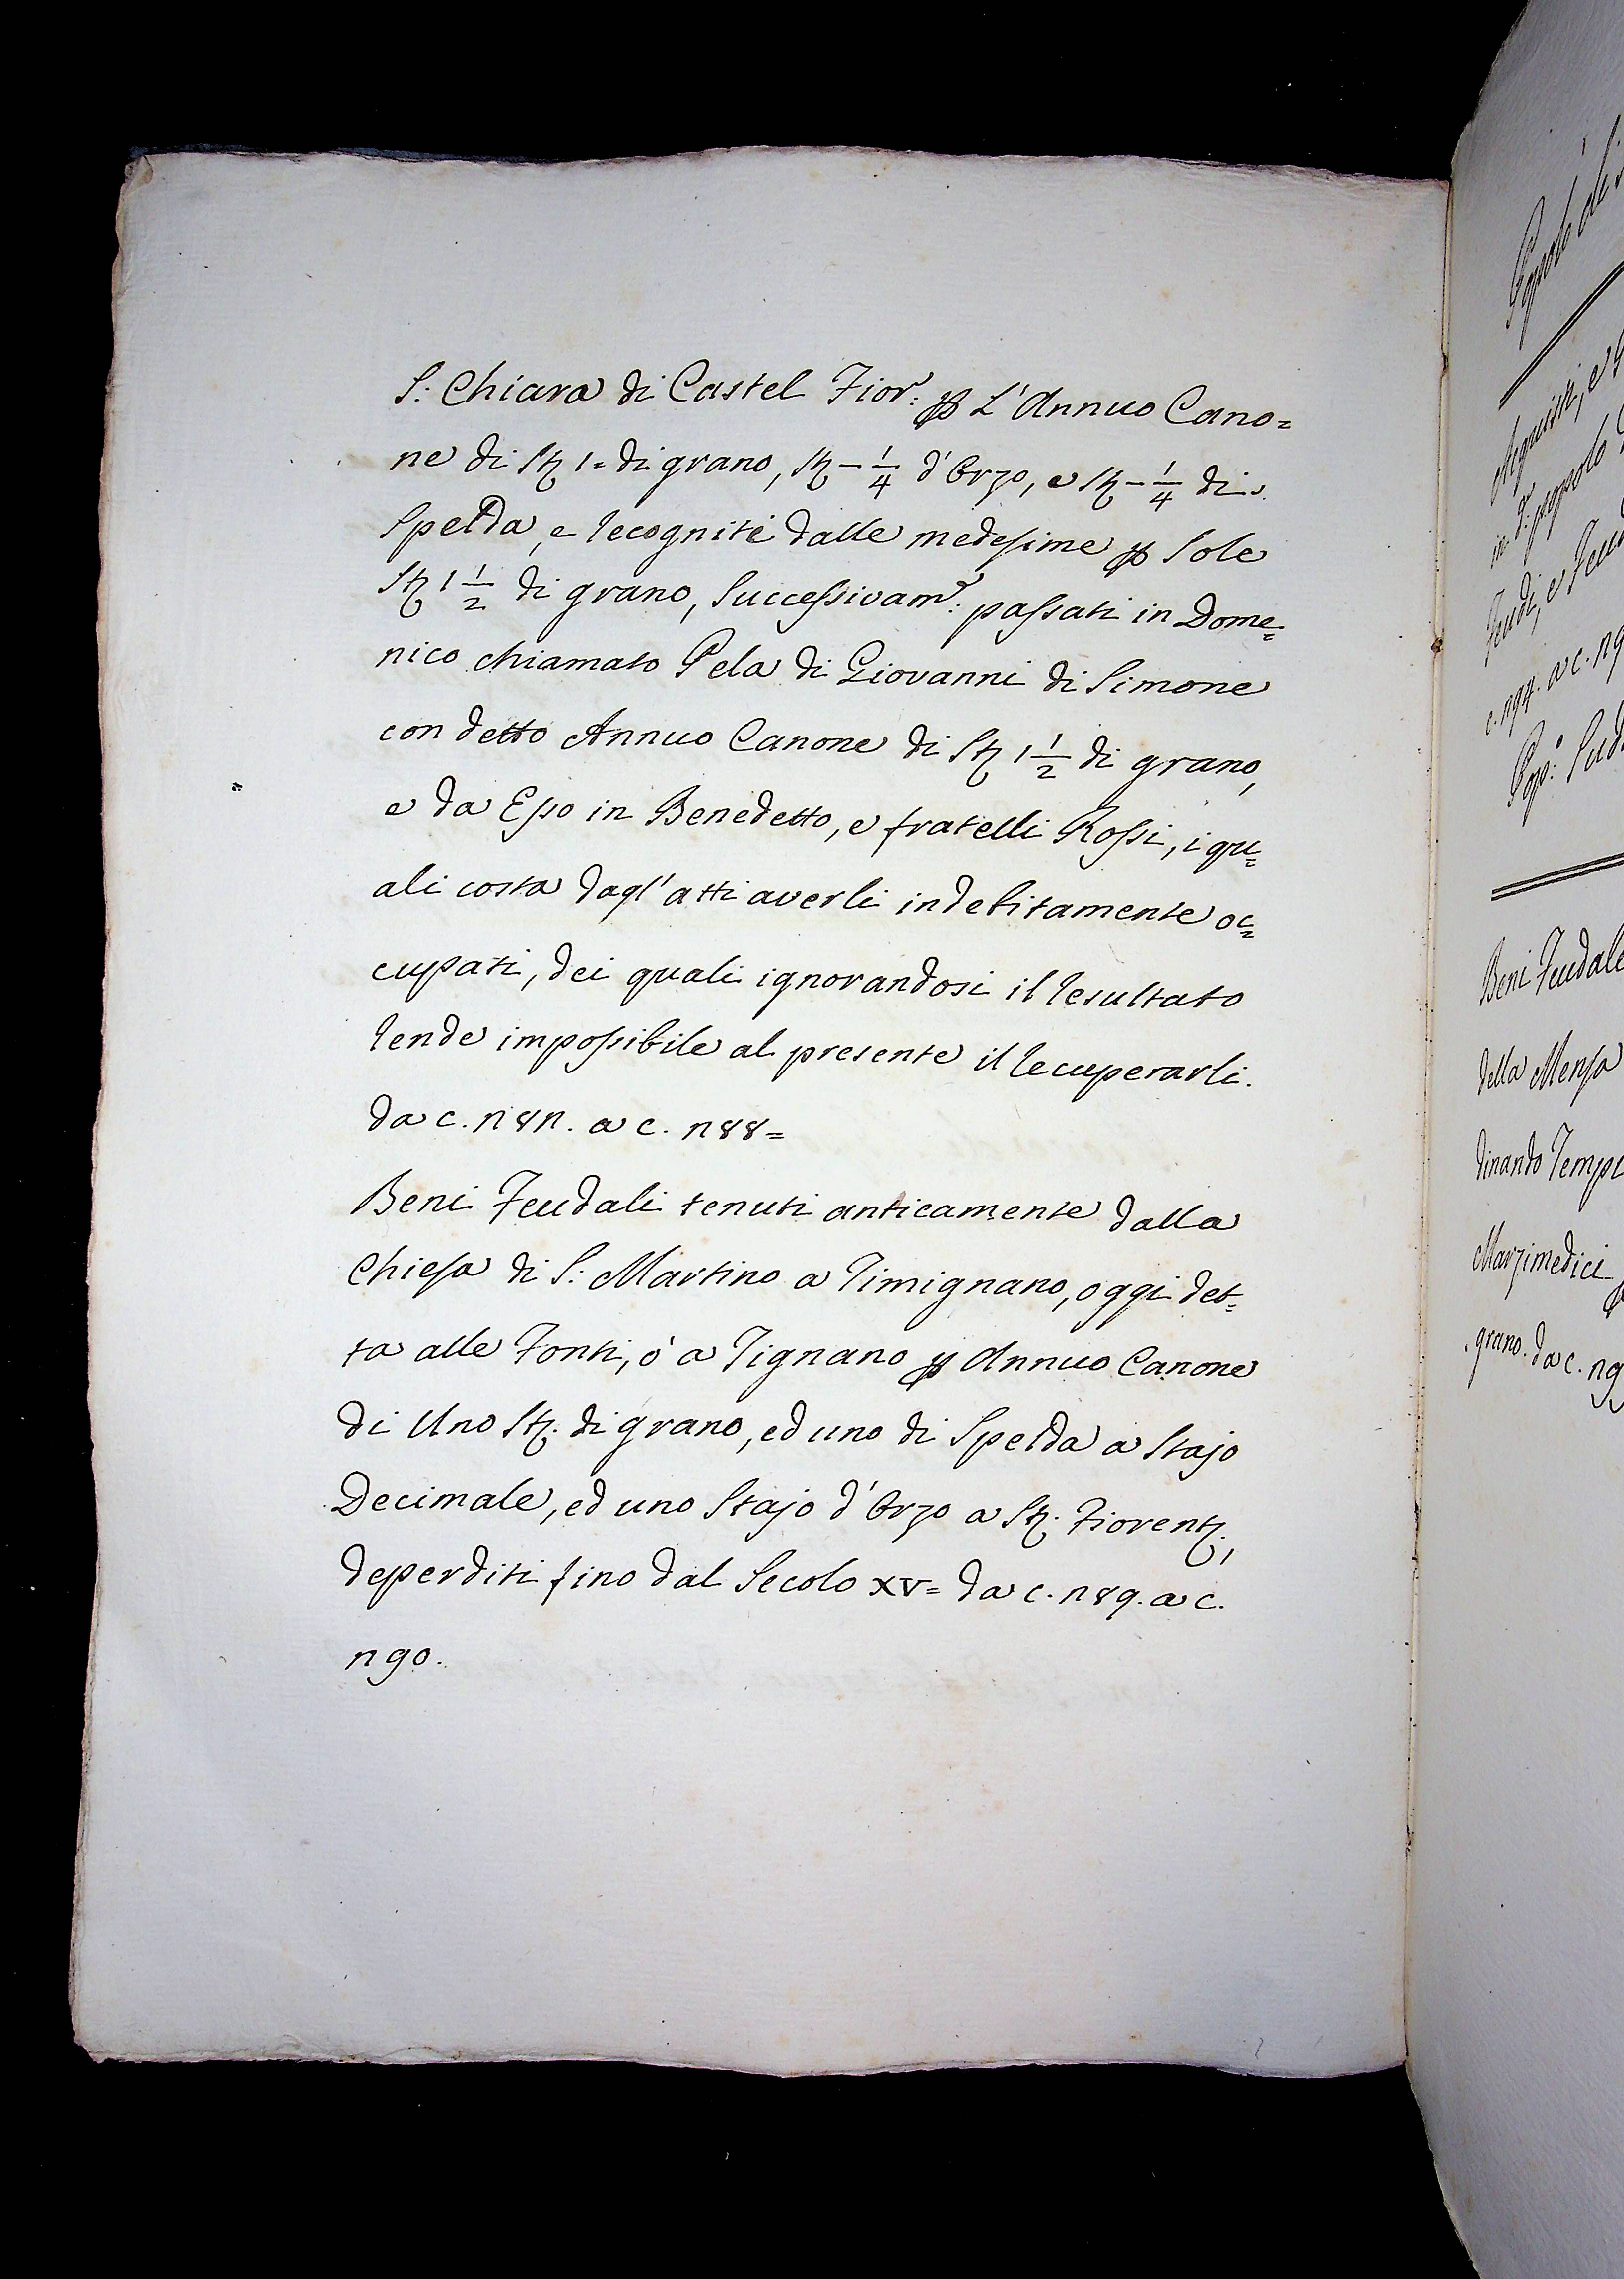 S: Chiara di Castel Fior: ꝑ L'Annuo Cano=
ne di Sta 1= di grano, Sta - 1/4 d'Orzo, e Sta - 1/4 di
Spelda, e recogniti dalle medesime ꝑ sole
Sta 1 1/2 di grano, Successivam: passati in Dome=
nico chiamato Pela di Giovanni di Simone
con detto Annuo Canone di Sta 1 1/2 di grano,
e da Esso in Benedetto, e fratelli Rossi, i qu=
ali costa dagl'atti averli indebitamente oc=
cupati, dei quali ignorandosi il resultato
rende impossibile al presente il recuperarli.
da c. 181. a c. 188=
Beni Feudali tenuti anticamente dalla
Chiesa di S: Martino a Timignano, oggi det=
ta alle Fonti, ò a Tignano ꝑ Annuo Canone
di Uno Sta. di grano, ed uno di Spelda a Stajo
Decimale, ed uno Stajo d'Orzo a Sta. Fiorent.,
deperditi fino dal Secolo XV= da c. 189. a c.
190.
Beni Feudale
della Mensa
dinando Tempi
Marzimedici
grano. da c.